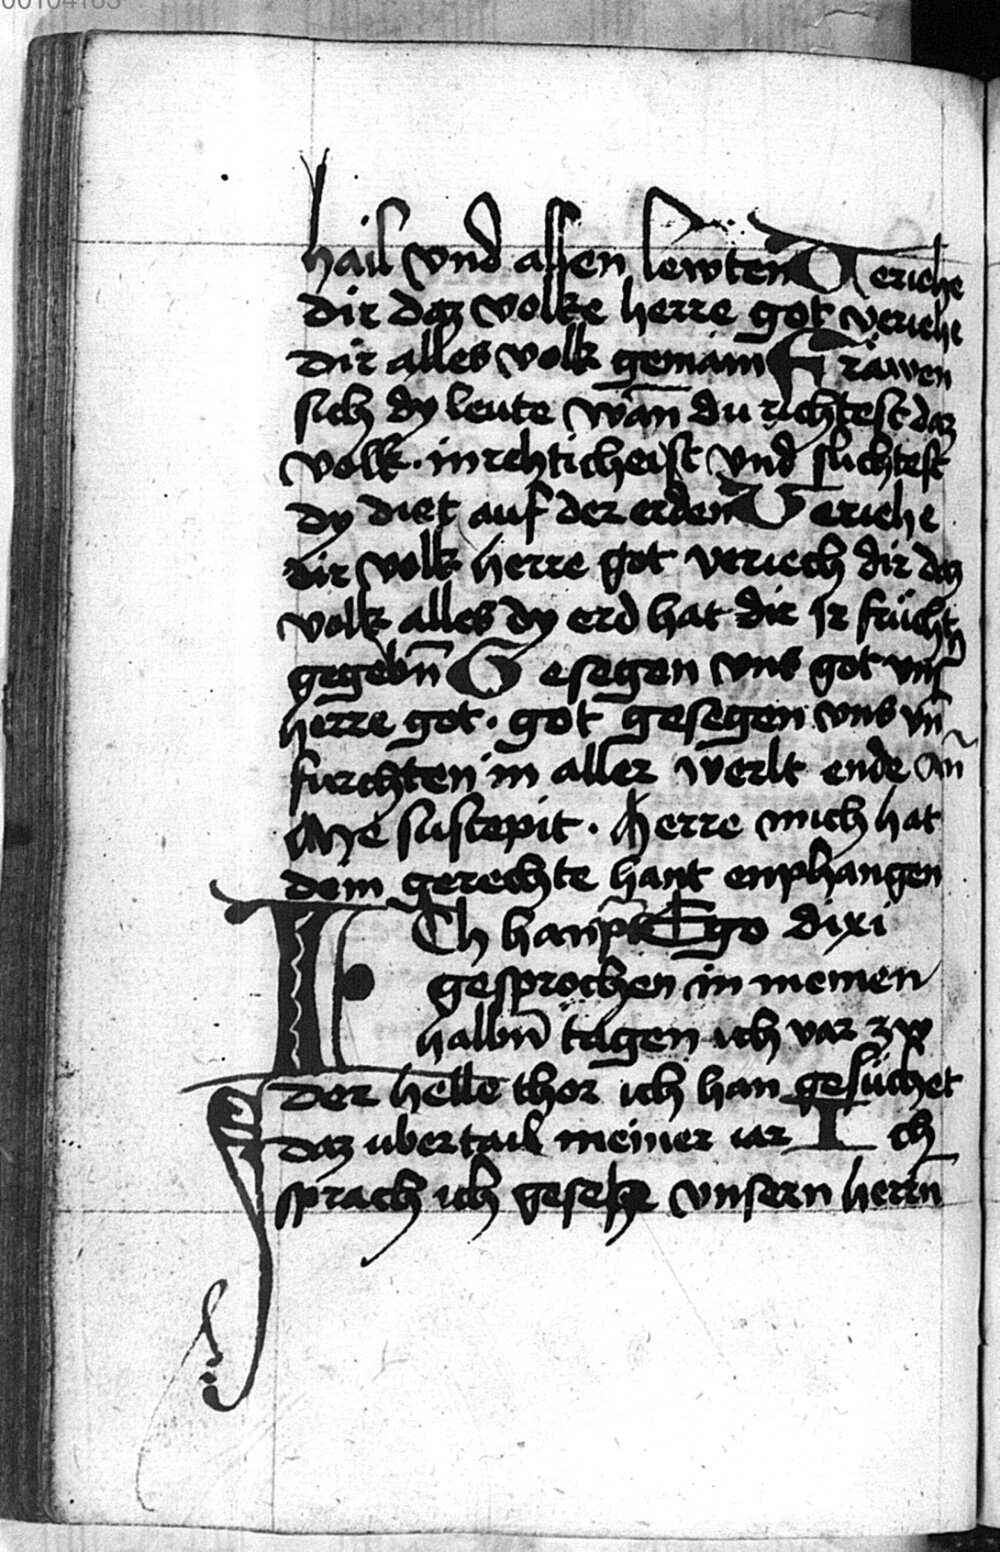 00104163
hail vnd allen lewten Veriche
dir daz volke herre got veriche
dir alles volk gemain Fräwen
sich dy leute wān du richtest daz
volk · in rehticheist vnd slichtest
dy diet auf der erden Veriche
dir volk herre got veriech dir daz
volk alles dy erd hat dir Ir früchtn
gegebn̄ Gesegen vns got vns̄
herre got · got gesegen vns vn̄
furchten in aller werlt ende An̄
Me suscepit · Herre mich hat
dein gerechte hant enphangen
Ich han Ego dixi
gesprochen in meinen
halbn̄ tagen ich var zw
der helle thor ich han gesüchet
daz vbertail meiner iar Ich
sprach ich gesehe vnsern herrn̄